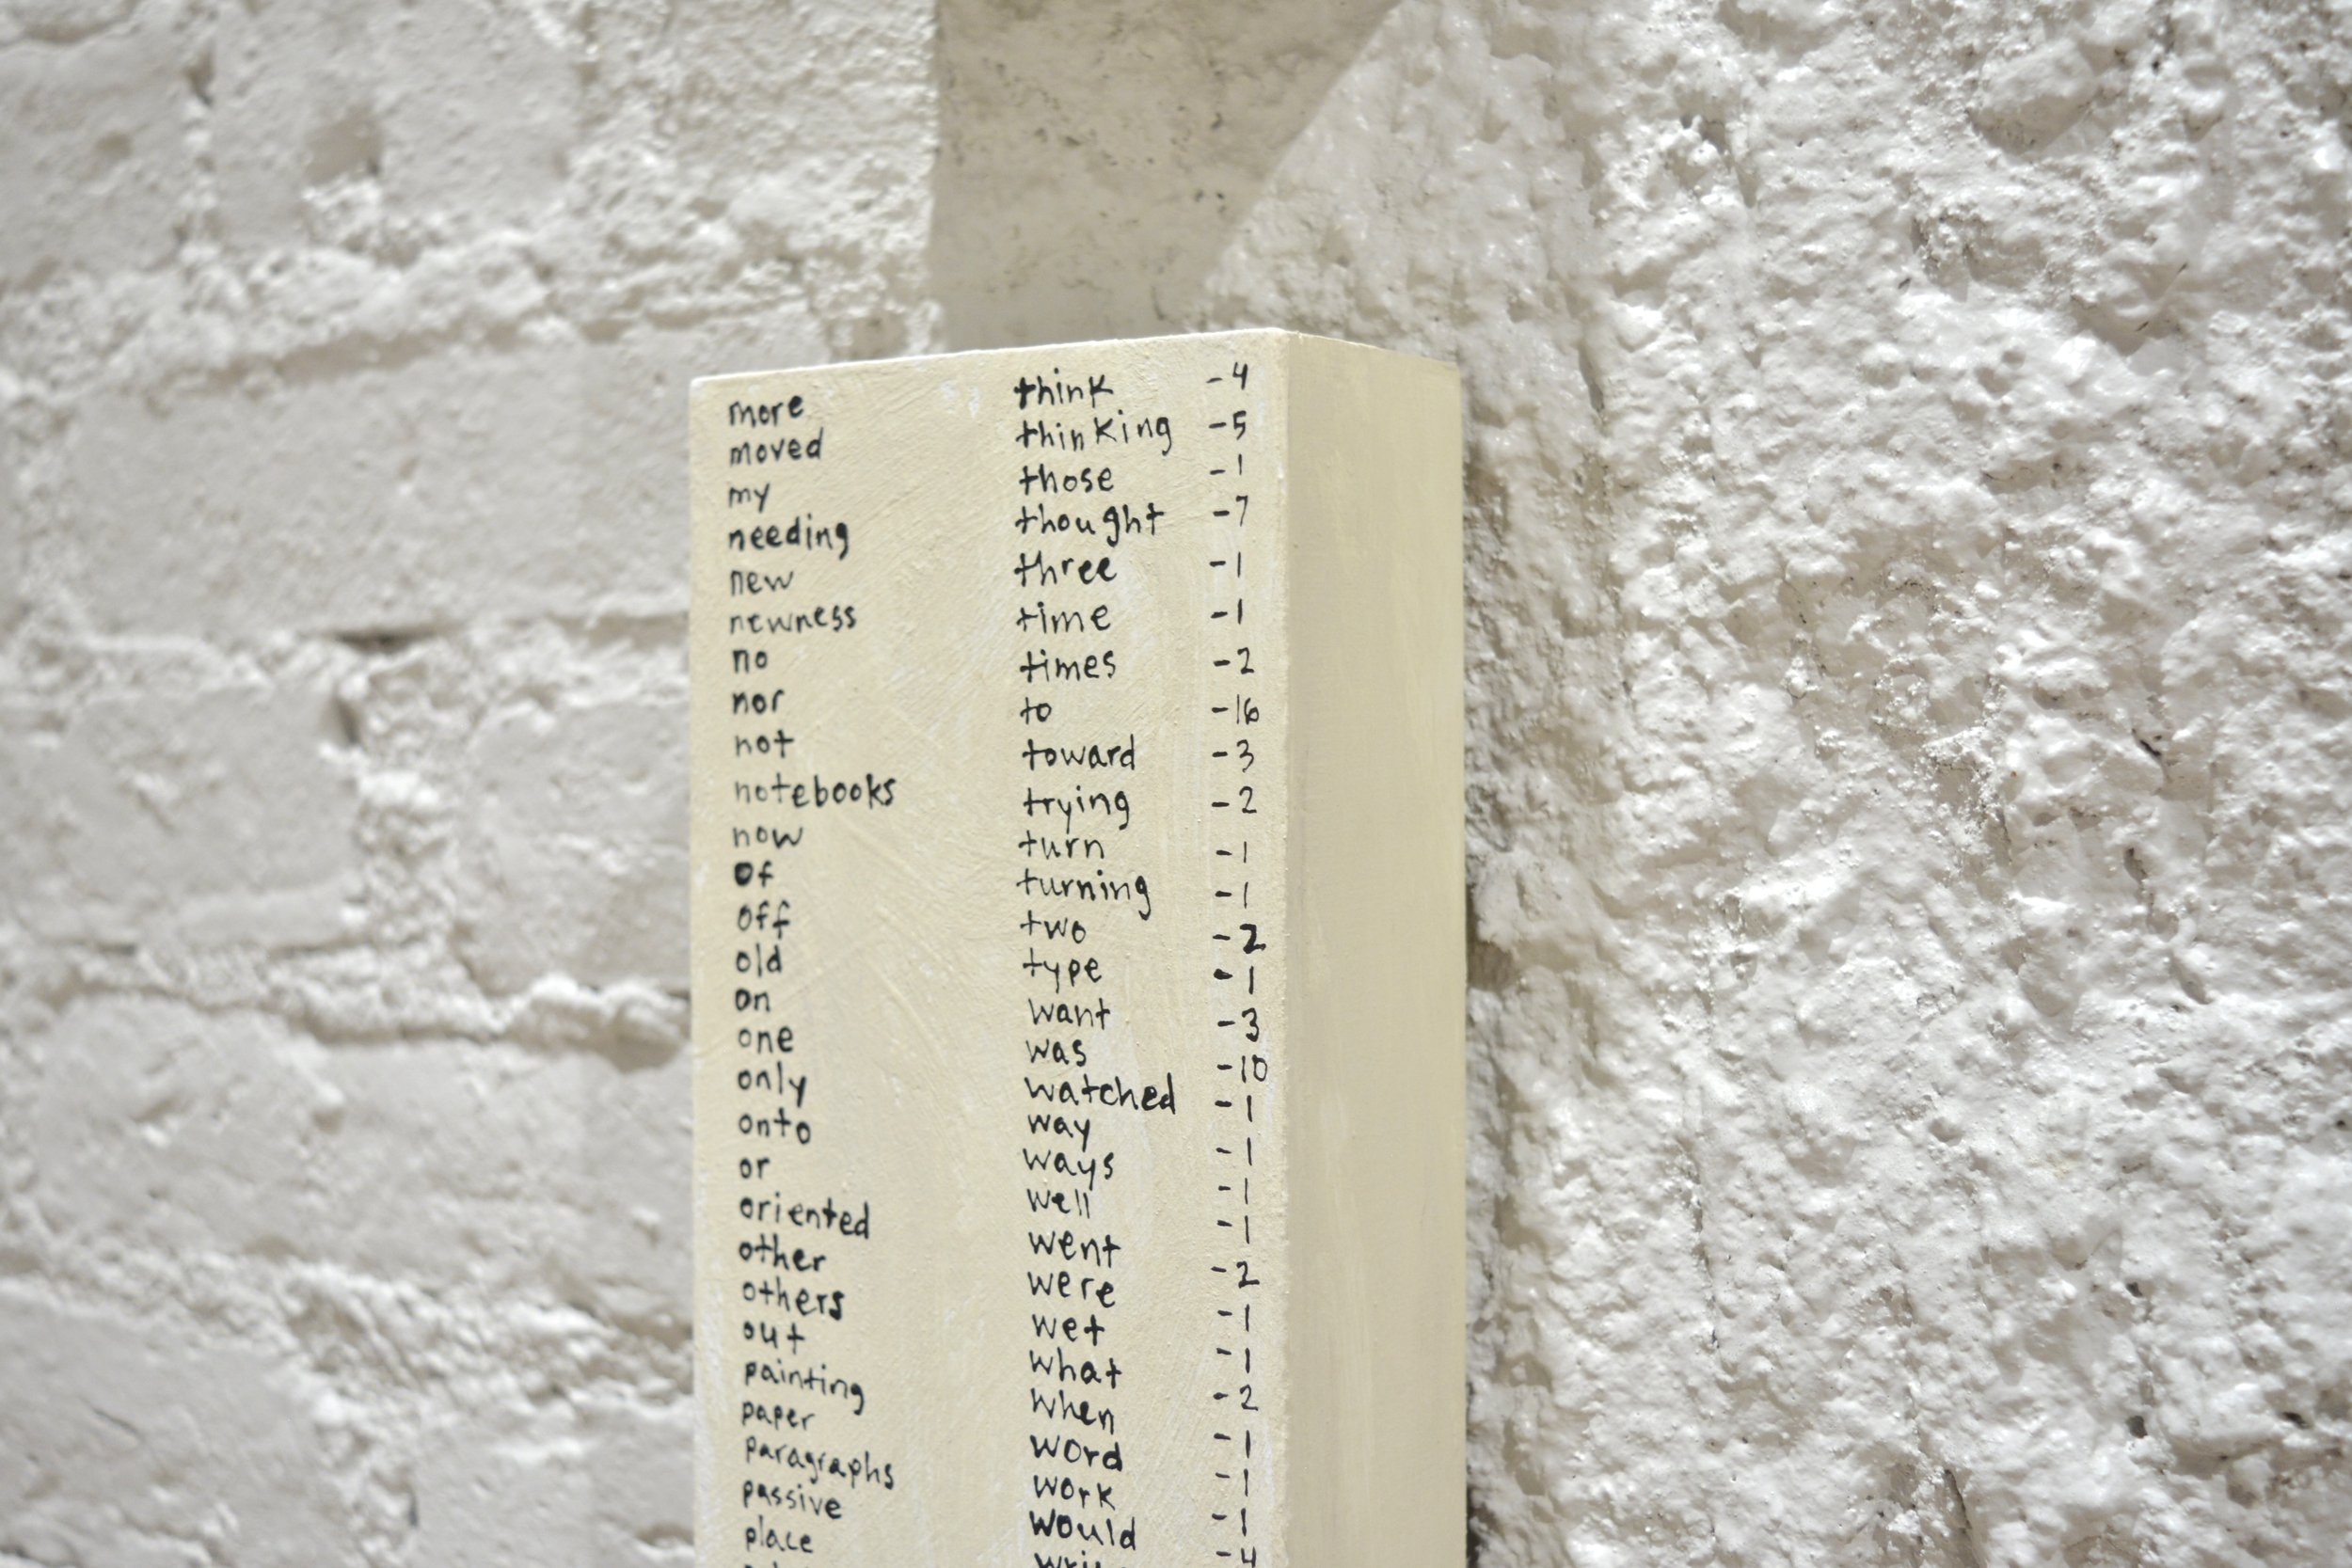 more
moved
my
needing
new
newness
no
nor
not
notebooks
now
of
off
old
on
one
only
onto
or
oriented
other
others
out
painting
paper
paragraphs
passive
place
think -4
thinking -5
those -1
thought -7
three -1
time -1
times -2
to -16
toward -3
trying -2
turn -1
turning -1
two -2
type -1
want -3
was -10
watched -1
way -1
ways -1
well -1
went -2
were -1
wet -1
what -2
when -1
word -1
work -1
would -4